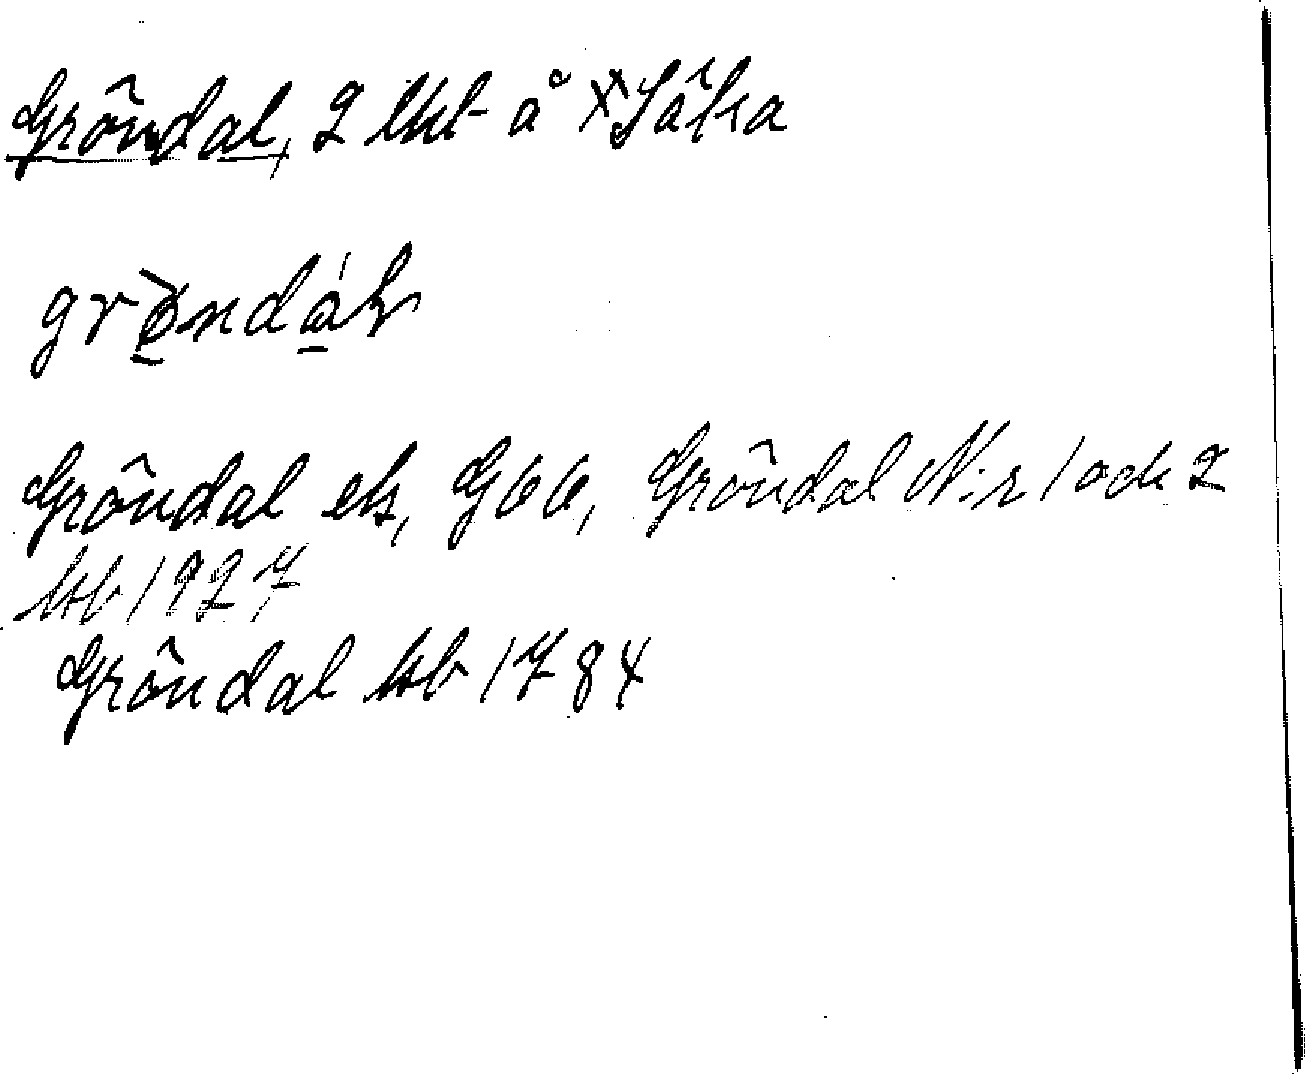 Gröndal, 2 lht å ˣSäfra
gröndáɫ
Gröndal ek, G66, Gröndal N:r 1 och 2
ktb 1927
Gröndal ktb 1784